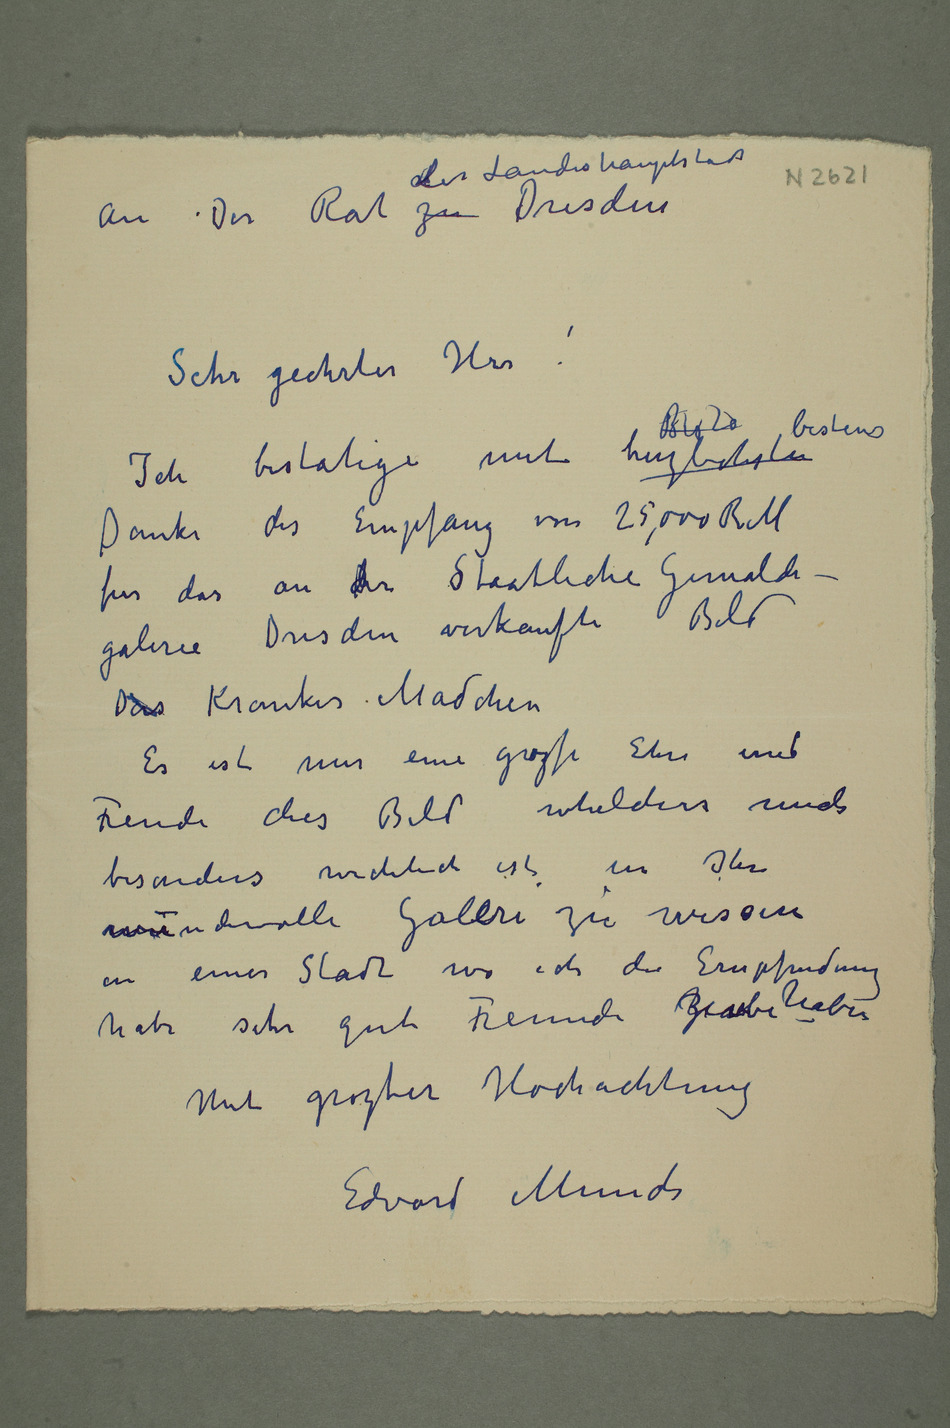 der Landeshauptstadt
N 2621
An Der Rat zu Dresden
Sehr geehrter Herr!
bestens
Ich bestätige mit herzlichsten
Danke des Empfang von 25,000 RM
fur das an der Staatliche Gemälde-
galerie Dresden verkaufte Bild
Das Krankes Mädchen
Es ist mir eine große Ehre und
Freude dies Bild welches mich
besonders wichtich ist, in Ihre
wundervolle Gallerie zu wissen
in einer Stadt wo ich die Empfindung
habe sehr gute Freunde haben
Mit großter Hochachtung
Edvard Munch